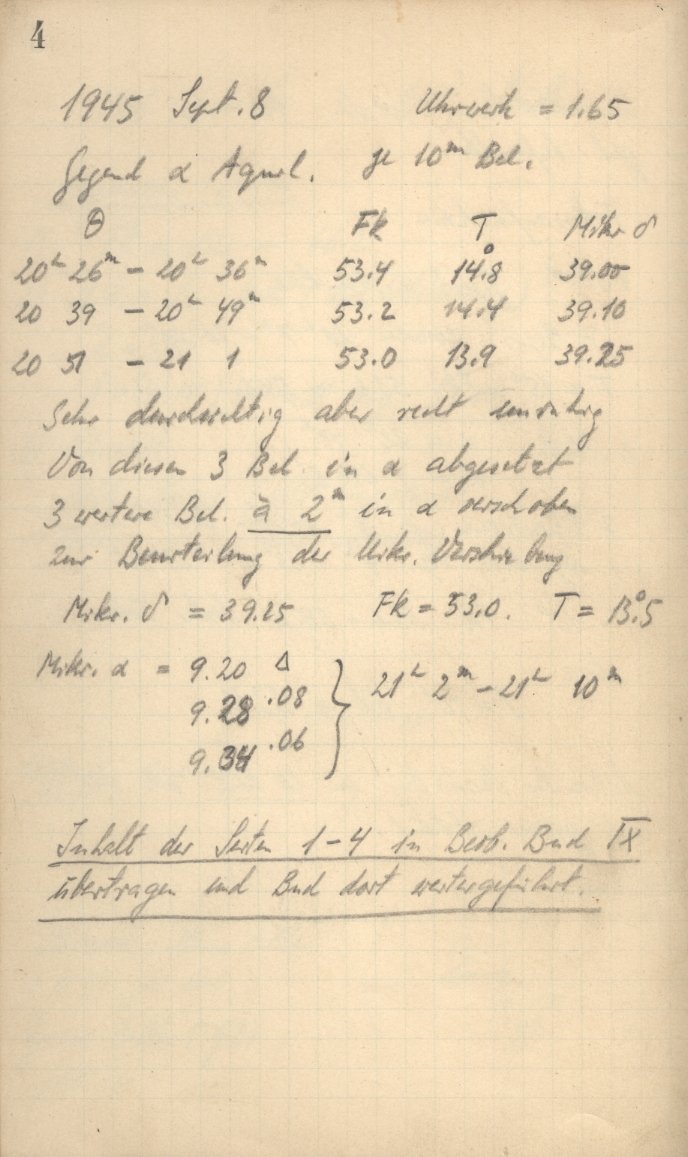 4
1945 Sept. 8 Uhrwerk = 1.65
Gegend α Aquil. je 10ᵐ Bel.
θ Fk T Mikr. δ
20ʰ 26ᵐ – 20ʰ 36ᵐ 53.4 14°.8 39.00
20 39 – 20ʰ 49ᵐ 53.2 14.4 39.10
20 51 – 21 1 53.0 13.9 39.25
Sehr durchsichtig aber recht unruhig
Von diesen 3 Bel. in α abgesetzt
3 weitere Bel. à 2ᵐ in α verschoben
zur Beurteilung der Mikr. Verschiebung
Mikr. δ = 39.25 Fk = 53.0. T = 13°.5
Mikr. α = 9.20 Δ
9.28 .08
9.34 .06
21ʰ 2ᵐ – 21ʰ 10ᵐ
Inhalt der Seiten 1–4 in Beob. Bud IX
übertragen und Bud dort weitergeführt.